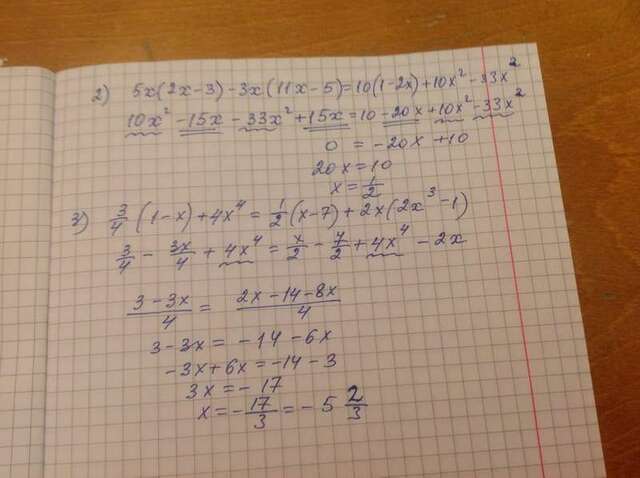 2) 5x(2x-3)-3x(11x-5)=10(1-2x)+10x²-33x²
10x²-15x-33x²+15x=10-20x+10x²-33x²
0 = -20x+10
20x=10
x=1/2
3) 3/4(1-x)+4x⁴=1/2(x-7)+2x(2x³-1)
3/4-3x/4+4x⁴=x/2-7/2+4x⁴-2x
(3-3x)/4=(2x-14-8x)/4
3-3x=-14-6x
-3x+6x=-14-3
3x=-17
x=-17/3=-5 2/3